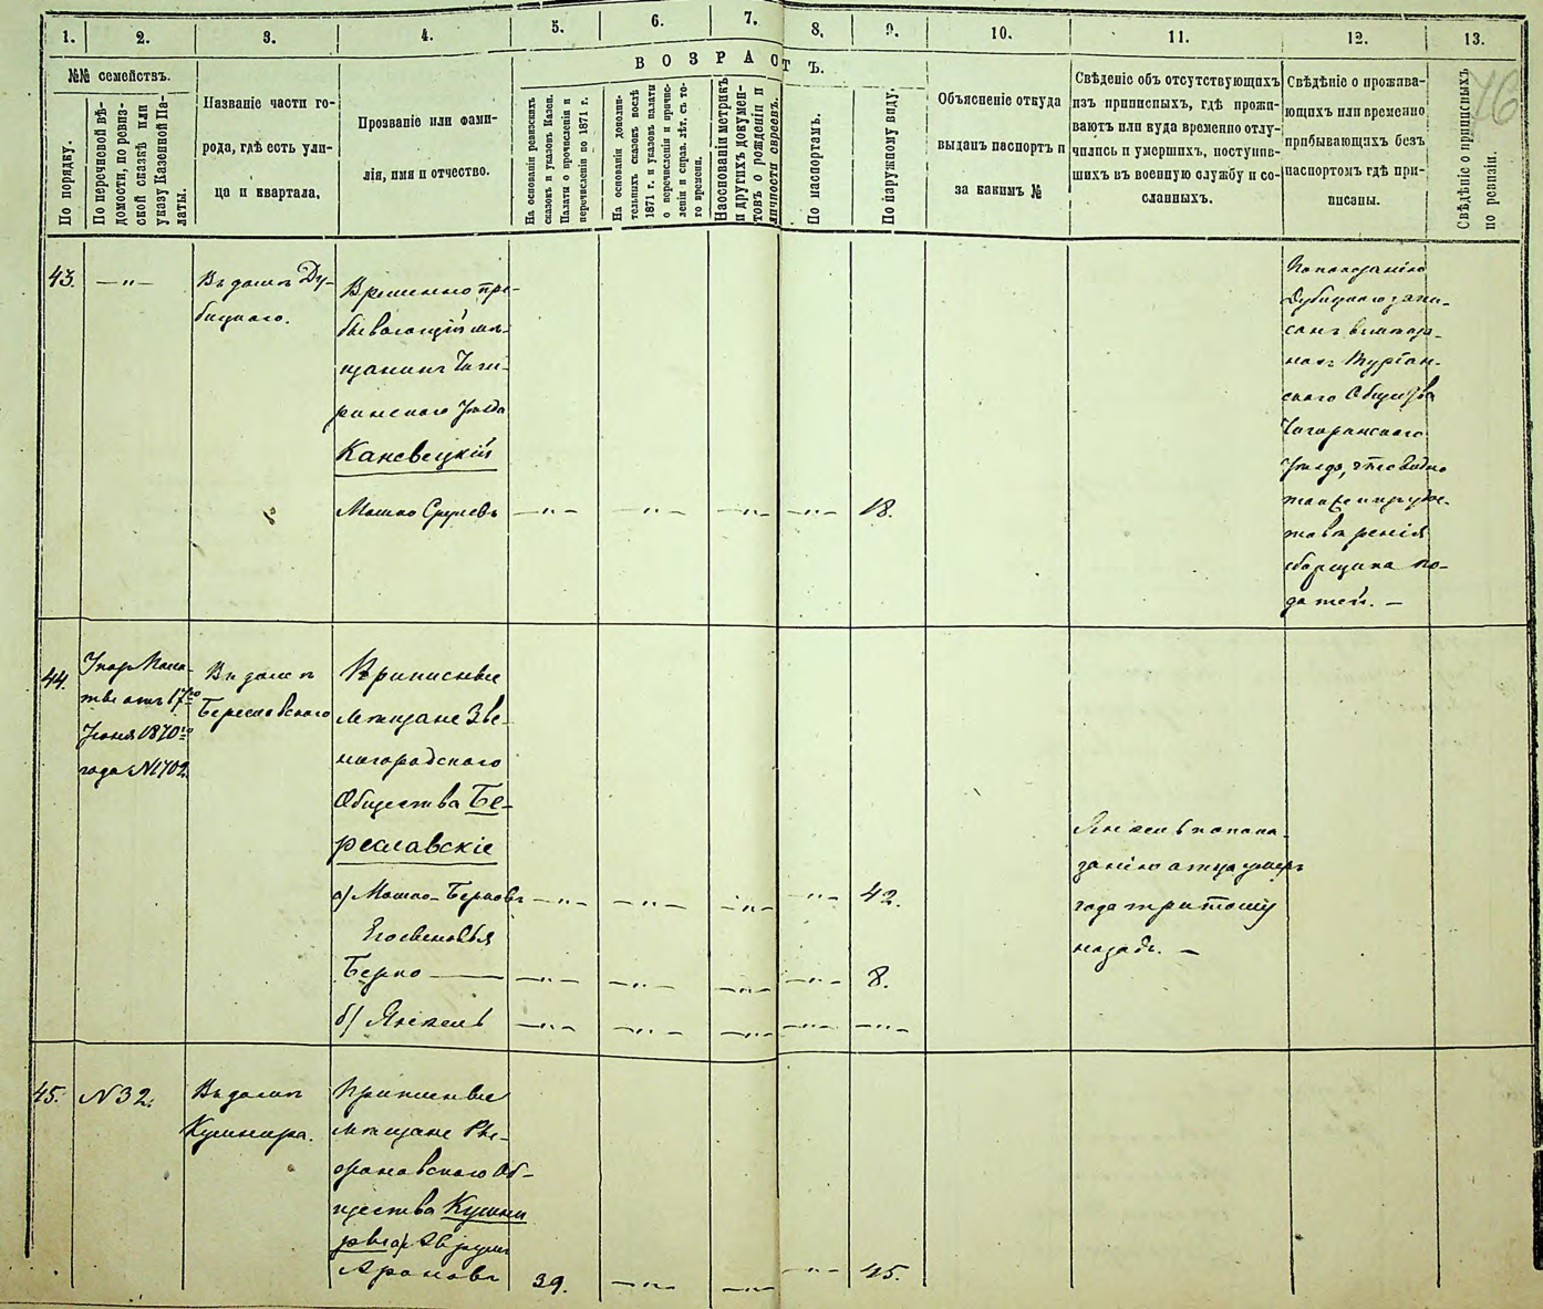 1.
2.
3.
4.
5.
6.
7.
8.
9.
10.
11.
12.
13.
76
В О З Р А С Т Ъ.
№№ семействъ.
По порядку.
По перечневой вѣ-
домости, по ревиз-
ской сказкѣ или
указу Казенной Па-
латы.
Названіе части го-
рода, гдѣ есть ули-
ца и квартала.
Прозваніе или фами-
лія, имя и отчество.
На основаніи ревизскихъ
сказокъ и указовъ Казен.
Палаты о прочисленіи и
перечисленіи по 1871 г.
На основаніи дополни-
тельныхъ сказокъ послѣ
1871 г. и указовъ палаты
о перечисленіи и причис-
леніи и справ. лѣт. съ то-
го времени.
Наоснованіи метрикъ
и другихъ докумен-
товъ о рожденіи и
личности евреевъ.
По паспортамъ.
По наружному виду.
Объясненіе откуда
выданъ паспортъ и
за какимъ №
Свѣденіе объ отсутствующихъ
изъ приписныхъ, гдѣ прожи-
ваютъ или куда временно отлу-
чились и умершихъ, поступив-
шихъ въ военную службу и со-
сланныхъ.
Свѣдѣніе о прожива-
ющихъ или временно
прибывающихъ безъ
паспортомъ гдѣ при-
писаны.
Свѣдѣніе о приписныхъ
по ревизіи.
43.
—"—
Въ домѣ Ду-
бицкаго.
Временно пре-
бывающій мѣ-
щанинъ Чиги-
ринскаго Уѣзда
Каневецкій
Мошко Срулевъ
—"—
—"—
—"—
—"—
18.
По показанію
Дубицкаго запи-
санъ
Общества
Чигиринскаго
Уѣзда,
сборщика по-
датей. —
44.
Указ. Пала-
ты отъ 17го
Іюня 1870го
года №1702.
Въ домѣ
Береславскаго
Приписные
Мѣщане Зве-
нигородскаго
Общества Бе-
реславскіе
а) Мошко-Берковъ
—"—
—"—
—"—
—"—
42.
Его сыновья
Берко ——
—"—
—"—
—"—
—"—
8.
б) Янкель
—"—
—"—
—"—
—"—
—"—
Янкель по пока-
занію отца умеръ
года три тому
назадъ. —
45.
№32.
Въ домѣ
Кушнира.
Приписные
Мѣщане
Об-
щества Кушни
ры а)
Ароновъ
39.
—"—
—"—
—"—
45.